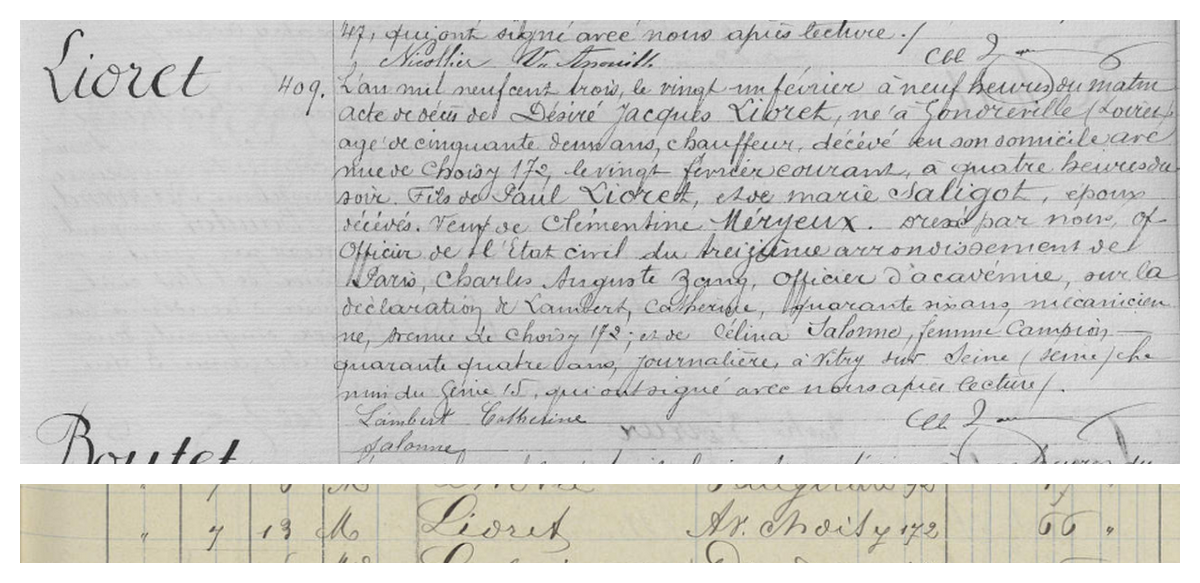 47, qui ont signé avec nous après lecture ./
Nicollier Vve
Lioret
409. L'an mil neuf cent trois, le vingt un février à neuf heures du matin
acte de décès de Désiré Jacques Lioret, né à Gondreville (Loiret)
agé de cinquante deux ans, chauffeur, décédé en son domicile ave
nue de Choisy 172, le vingt février courant, à quatre heures du
soir. Fils de Paul Lioret, et de marie Saligot, époux
décédés. Veuf de Clémentine Méryeux. Dressé par nous, of
Officier de l'Etat civil du treizième arrondissement de
Paris, Charles Auguste Zang, Officier d'académie, sur la
déclaration de Lambert, Catherine, quarante six ans, mécanicien
ne, avenue de Choisy 172; et de Célina Jalonne, femme Campion,
quarante quatre ans, journalière, à Vitry sur Seine (Seine) che
min du Génie 15, qui ont signé avec nous après lecture /.
Lambert Catherine
Jalonne
Boutet
" 7 13 M Lioret Av. Choisy 172 66 "